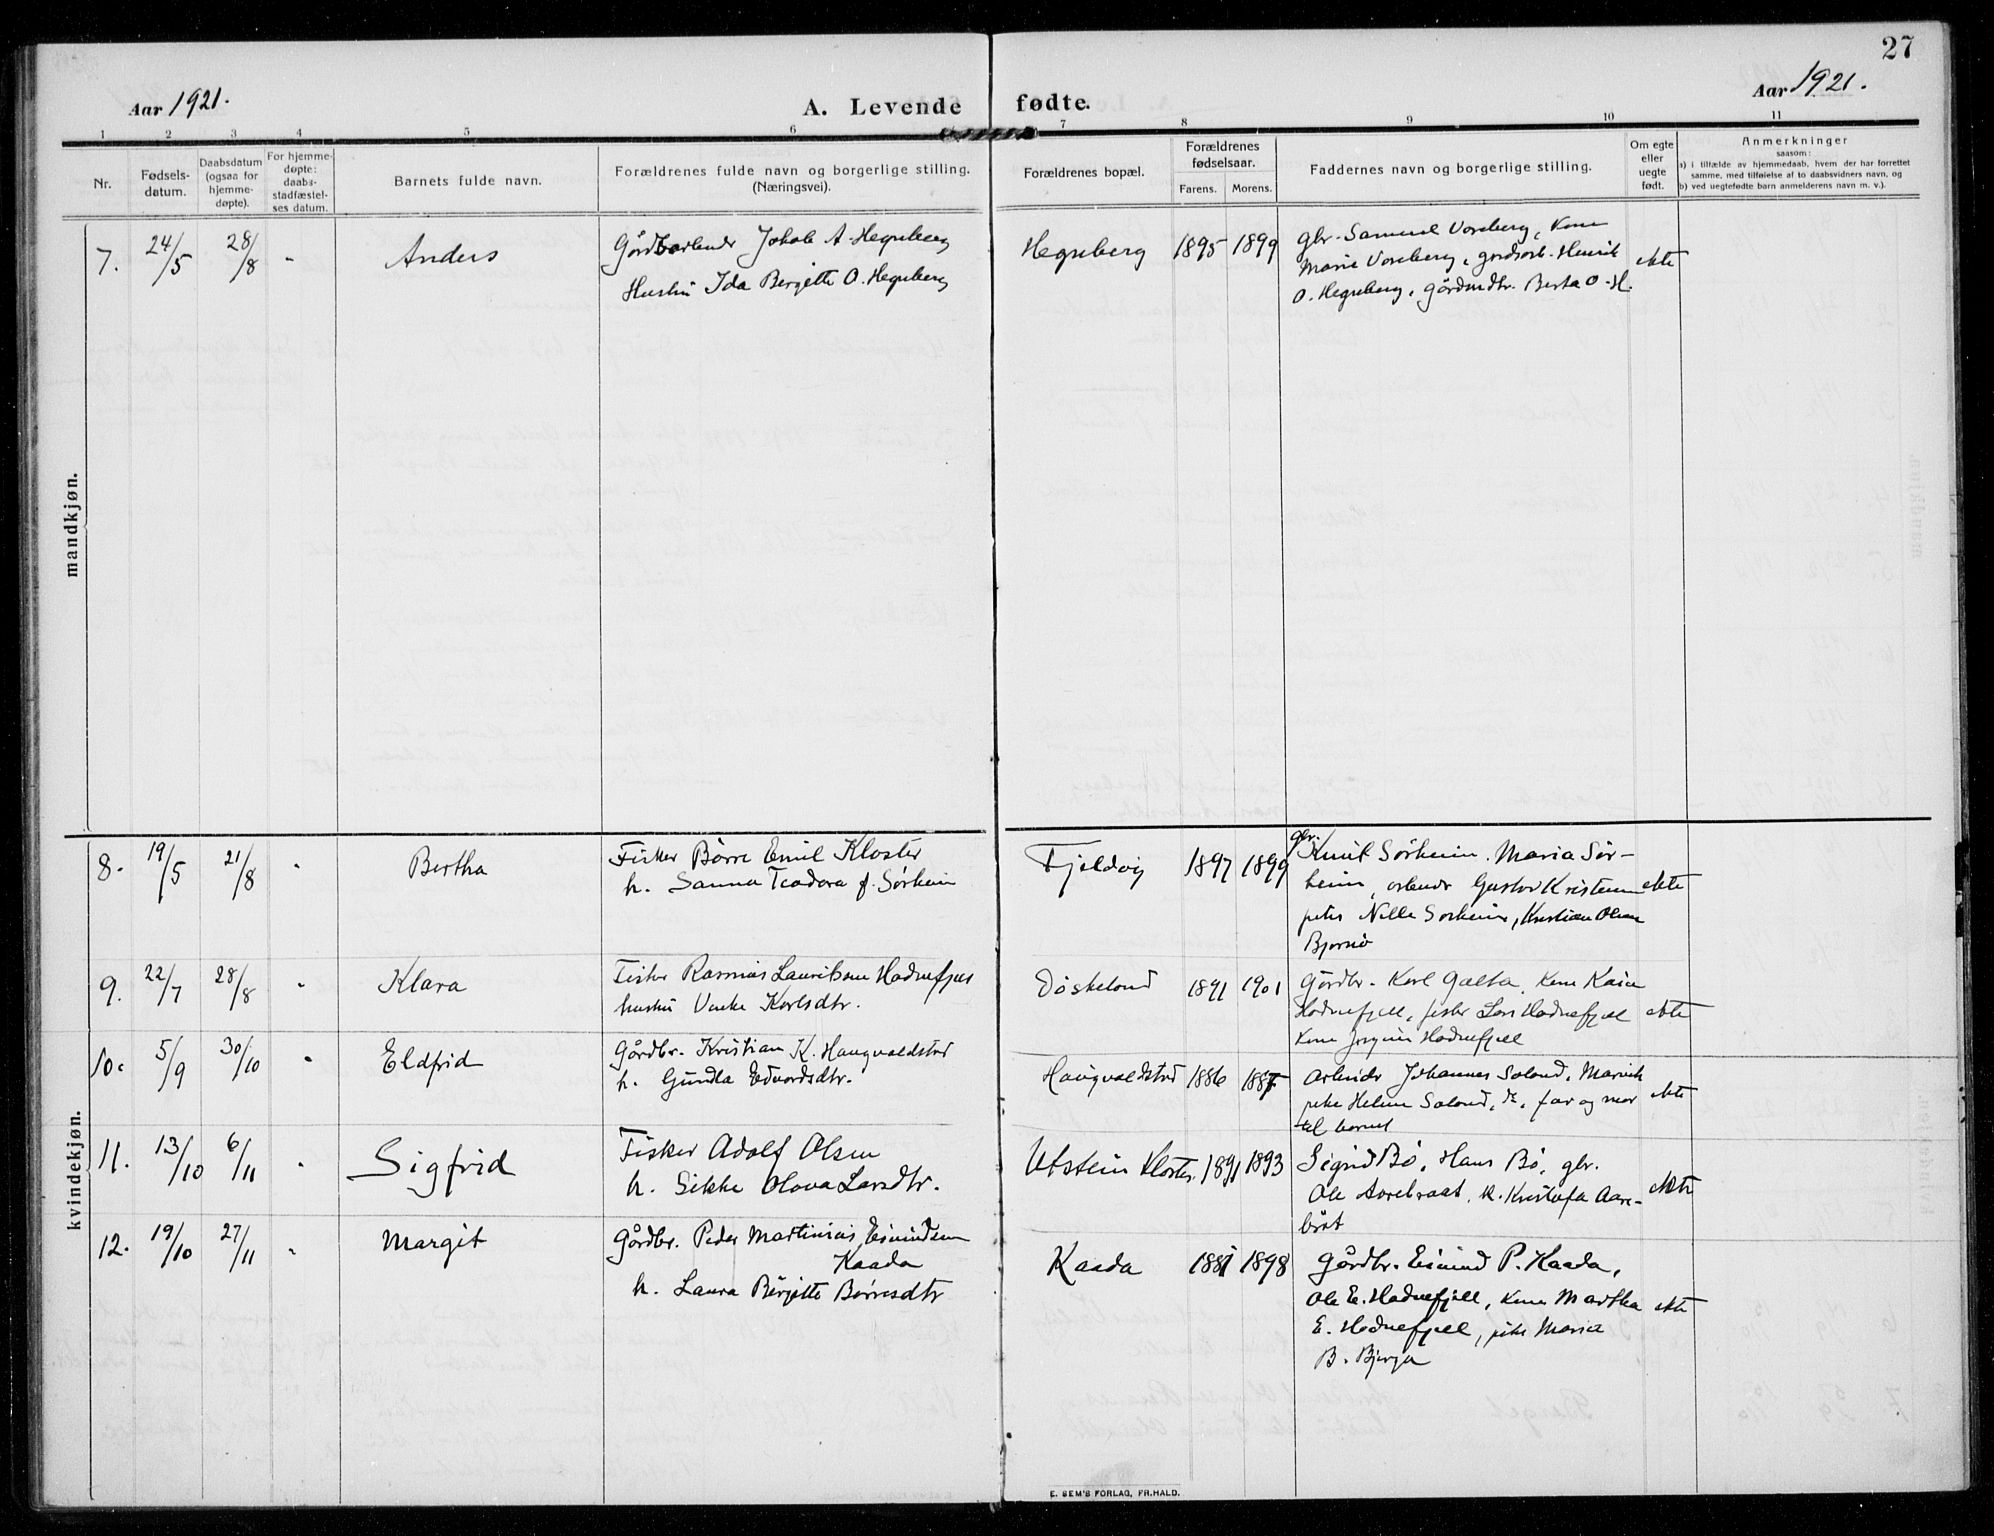 27
Aar 1921.
A. Levende fødte.
Aar 1921.
1 2 3 4 5 6 7 8 9 10 11
Nr.
Fødsels-
datum.
Daabsdatum
(ogsaa for
hjemme-
døpte).
For hjemme-
døpte:
daabs-
stadfæstel-
ses datum.
Barnets fulde navn.
Forældrenes fulde navn og borgerlige stilling.
(Næringsvei).
Forældrenes bopæl.
Forældrenes
fødselsaar.
Farens. Morens.
Faddernes navn og borgerlige stilling.
Om egte
eller
uegte
født.
Anmerkninger
saasom:
a) i tilfælde av hjemmedaab, hvem der har forrettet
samme, med tilføielse af to daabsvidners navn, og
b) ved uegtefødte barn anmelderens navn m. v.).
mandkjøn.
7. 24/5 28/8 " Anders
Gårdbarbeidr Jakob A. Hegreberg
Hustru Ida Bergitte O. Hegreberg
Hegreberg 1895 1899
gbr. Samuel Voreberg, Kone
Marie Voreberg, gardsarb. Henrik
O. Hegreberg, gårdmdtr. Berta O. H.
ekte
kvindekjøn.
8. 19/5 21/8 " Bertha
Fisker Børre Emil Kloster
h. Sanna Teodora f. Sørheim
Fjeldvig 1897 1899
gbr. Knut Sørheim. Maria Sør-
heim, arbeidr Gustav Kristensen
Nille Sørheim, Kristian Olsen
Bjørnø
ekte
9. 22/7 28/8 " Klara
Fisker Rasmus Lauritssen Hodnefjel
hustru Karlsdtr.
Døskeland 1891 1901
Gårdbr. Karl Galta, Kone Kaia
Hodnefjell, fisker Lars Hodnefjell
Kone Hodnefjell
ekte
10. 5/9 30/10 " Eldfrid
Gårdbr. Kristian K. Haugvaldstad
h. Gunda Edvardsdtr.
Haugvaldstad 1886 1887
Arbeidr Johannes Saland, Marvik
pike Helene Saland, far og mor
til barnet
ekte
11. 13/10 6/11 " Sigfrid
Fisker Adolf Olsen
h. Sikke Olava Larsdtr.
Utstein Kloster. 1891 1893
Sigrid Bø, Hans Bø, gbr.
Ole Aarebraat, k. Kristofa Aare-
bråt
ekte
12. 19/10 27/11 " Margit
Gårdbr. Peder Martinius Eivindsen
Kaada
h. Laura Bergitte Børresdtr
Kaada 1881 1898
Gårdbr. Eivind P. Kaada,
Ole E. Hodnefjell, Kone Martha
E. Hodnefjell, pike Maria
B. Bjerga
ekte
E. SEM'S FORLAG, FR.HALD.